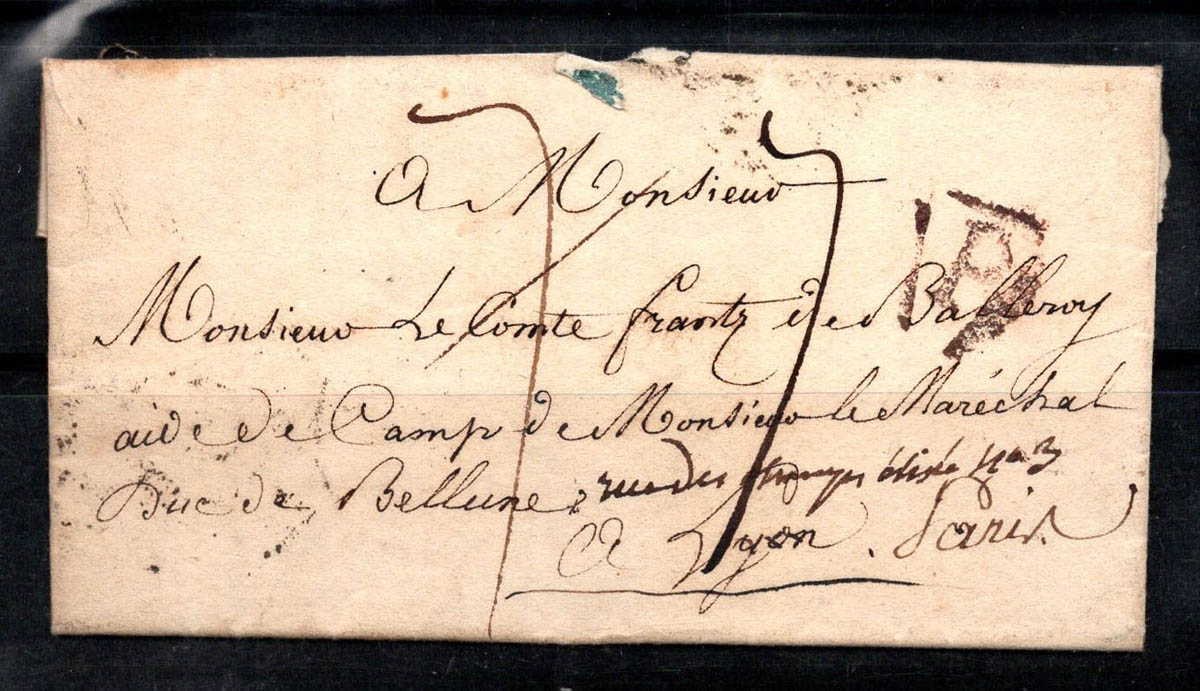 A Monsieur
P
Monsieur Le Comte frantz de Balleroy
aide de Camp de Monsieur le Maréchal
Duc de Bellune rue des champs élisée no 3
A Lyon. Paris.